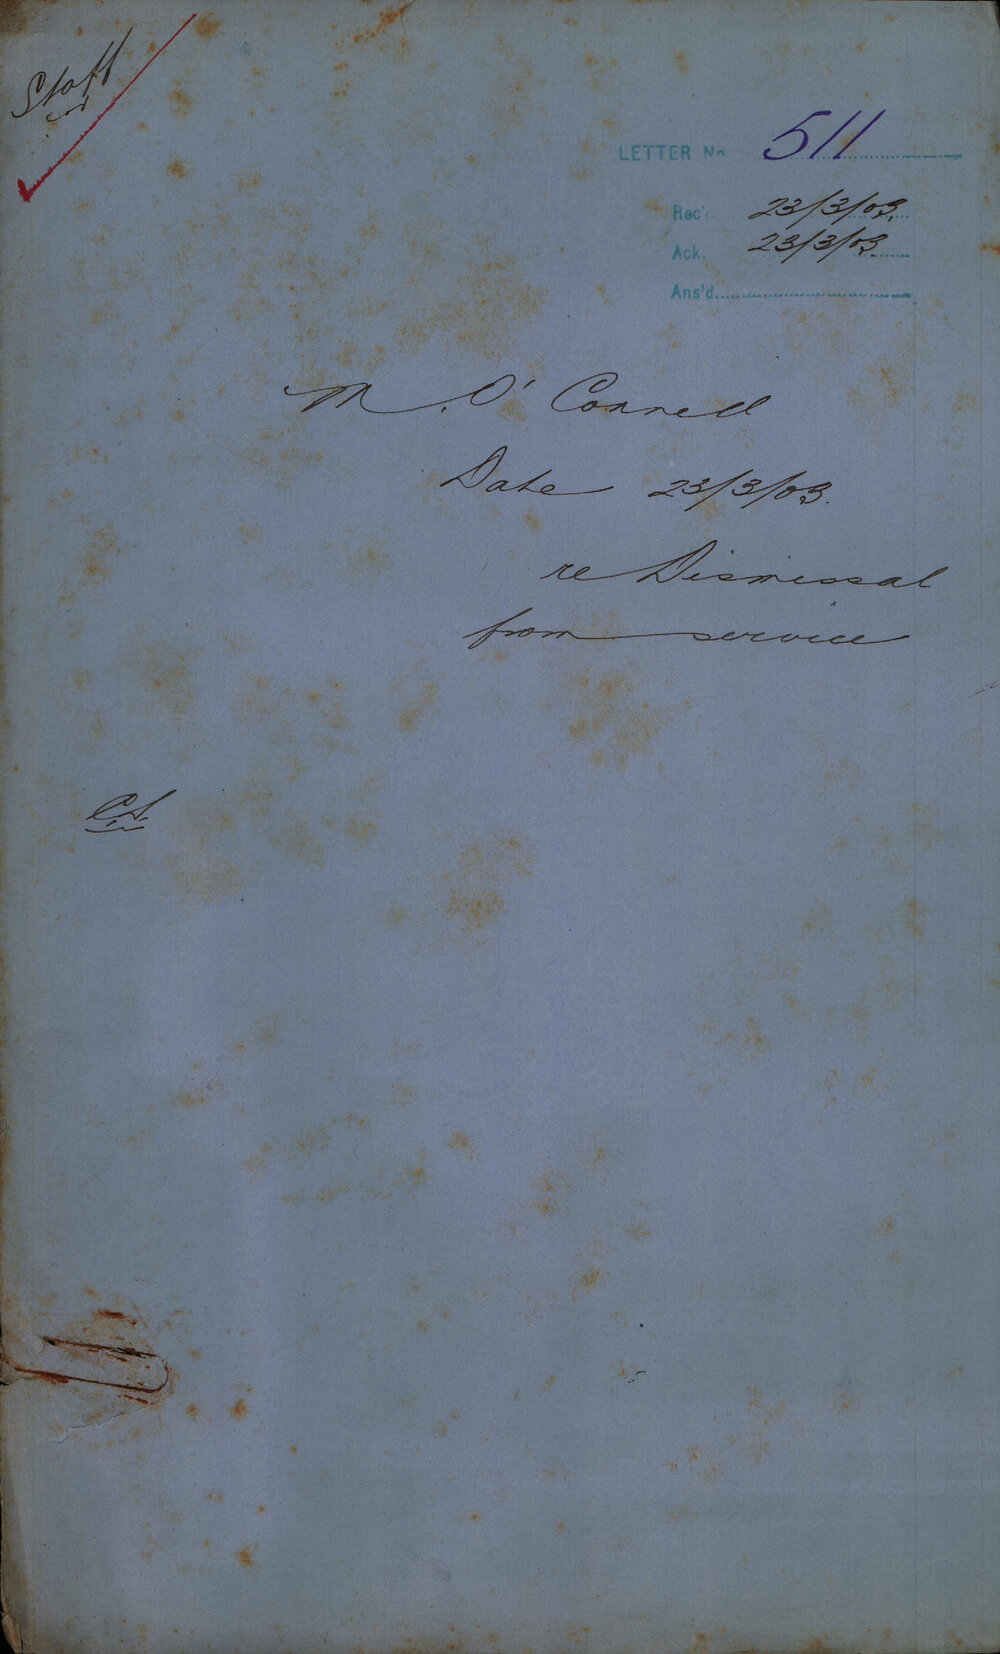 Staff
LETTER No 511
Rec'd 23/3/03.
Ack. 23/3/03
Ans'd
M. O'Connell
Date 23/3/03.
re Dismissal
from service